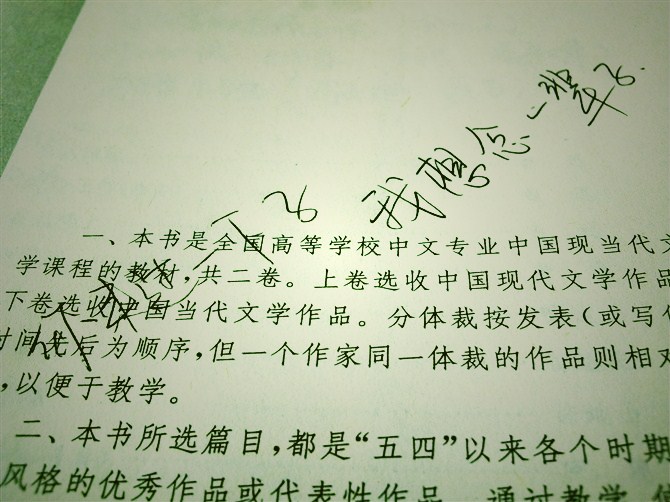 我想念一班
一、本书是全国高等学校中文专业中国现当代文
学课程的教材，共二卷。上卷选收中国现代文学作品
下卷选收中国当代文学作品。分体裁按发表（或写作
时间先后为顺序，但一个作家同一体裁的作品则相对
，以便于教学。
二、本书所选篇目，都是“五四”以来各个时期
风格的优秀作品或代表性作品。通过教学